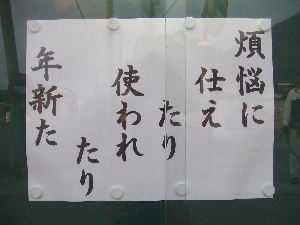 煩悩に
仕え
たり
使われ
たり
年新た